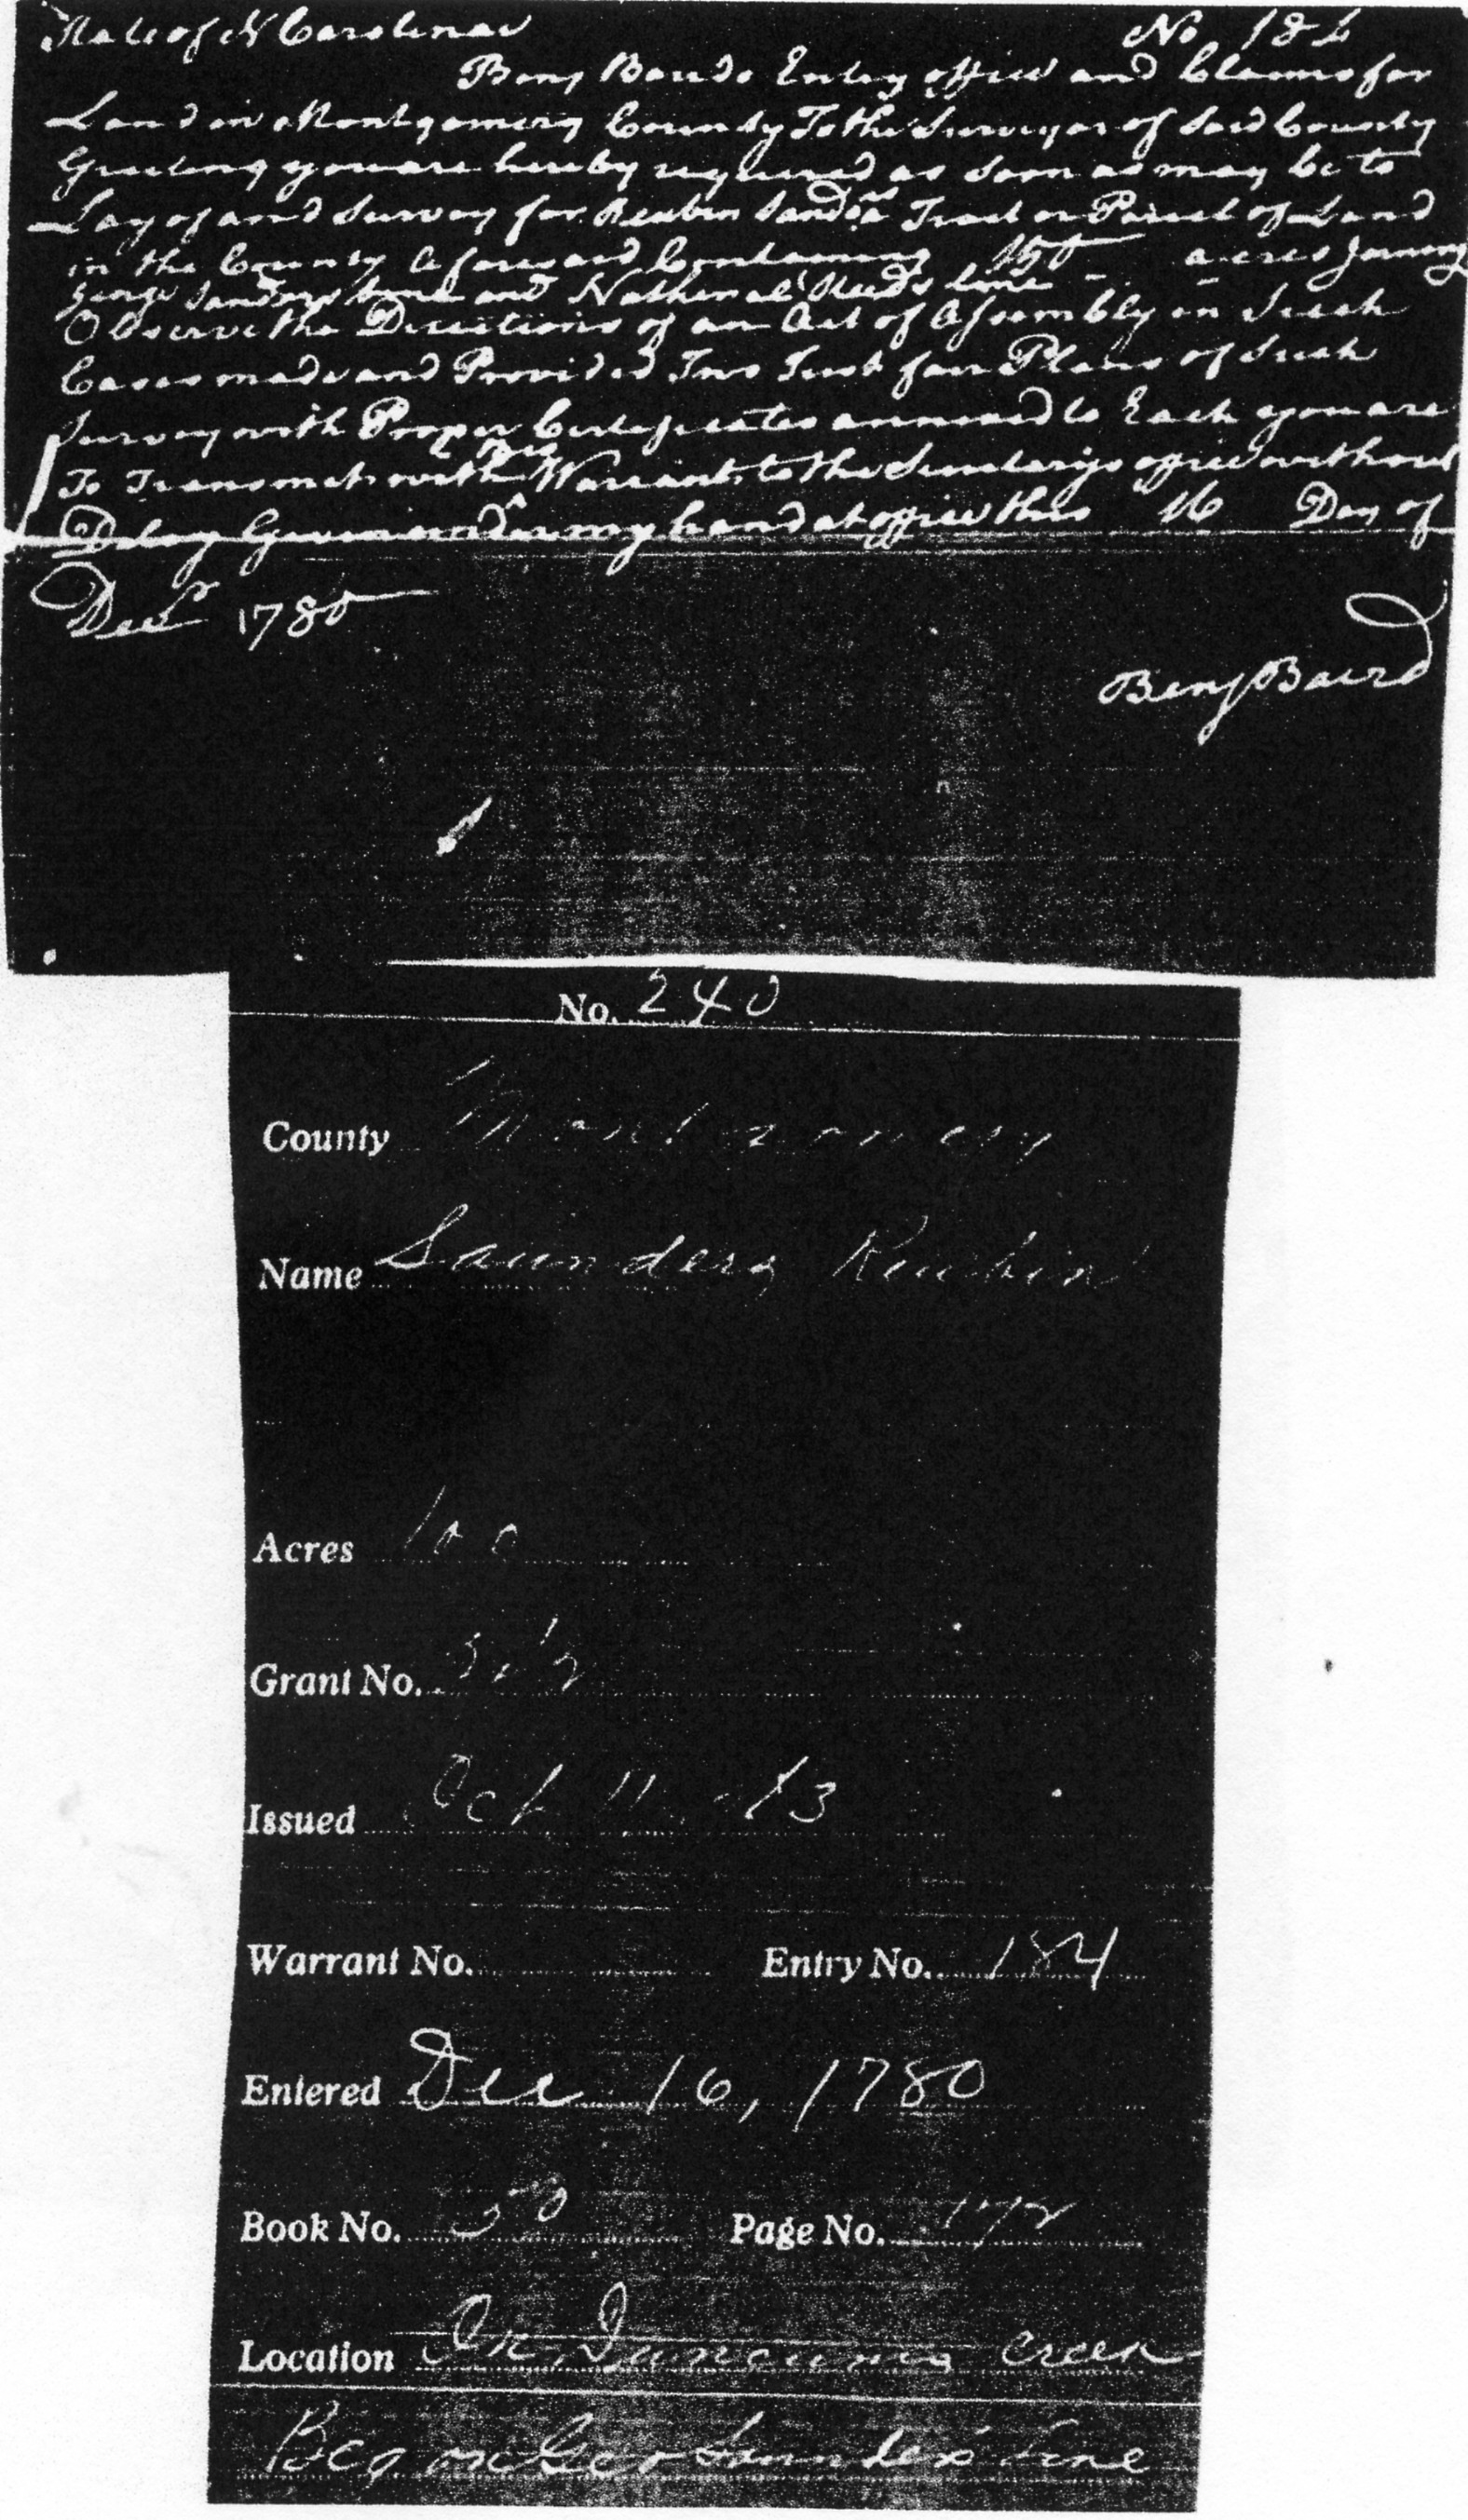 State of N Carolina No 184
Benj Bairds Entry office and Claims for
Land in Montgomery County To the Surveyor of Said County
Greeting you are hereby required as Soon as may be to
Lay of and Survey for Reuben Sanders a Tract or Parcel of Land
in the County aforesaid Containing 150 acres Joining
George Sanders line and Nathaniel Steeds line
Observe the Directions of an Act of Assembly in Such
Cases made and Provided Two Just fair Plans of Such
Survey with Proper Certificates annexed to Each you are
To Transmit with this Warrant to the Secretarys office without
Delay Given under my hand at office this 16 Day of
Decr 1780
Benj Baird
No. 240
County Montgomery
Name Saunders Reubin
Acres 100
Grant No.
Issued Oct 11
Warrant No. Entry No. 184
Entered Dec 16, 1780
Book No. 50 Page No. 172
Location On Creek
Beg on Geo Saunders Line